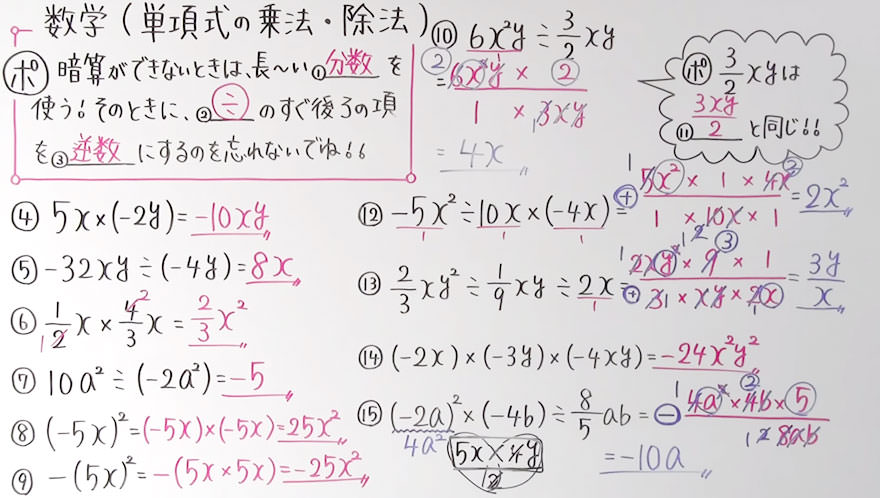 数学(単項式の乗法・除法)
ポ 暗算ができないときは、長〜い①分数を
使う!そのときに、②÷のすぐ後ろの項
を③逆数にするのを忘れないでね!!
④ 5x×(-2y)=-10xy
⑤ -32xy÷(-4y)=8x
⑥ 1/2x×4/3x=2/3x²
⑦ 10a²÷(-2a²)=-5
⑧ (-5x)²=(-5x)×(-5x)=25x²
⑨ -(5x)²=-(5x×5x)=-25x²
⑩ 6x²y÷3/2xy
=6x²y×2/1×3xy
=4x
ポ 3/2xyは
⑪3xy/2と同じ!!
⑫ -5x²÷10x×(-4x)=+5x²×1×4x/1×10x×1=2x²
⑬ 2/3xy²÷1/9xy÷2x=+2xy²×9×1/3×xy×2x=3y/x
⑭ (-2x)×(-3y)×(-4xy)=-24x²y²
⑮ (-2a)²×(-4b)÷8/5ab=-4a²×4b×5/8ab
4a²
=-10a